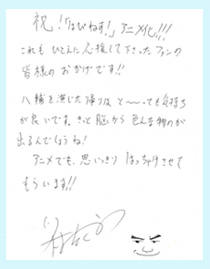 祝!「はぴねす!」アニメ化!!!
これも ひとえに 応援して下さったファンの
皆様の おかげです!!
八輔を演じた帰りは と〜っても気持ち
が良いです。きっと脳から 色んな物が
出るんでしょうね!
アニメでも、思いっきり はっちゃけさせて
もらいます!!